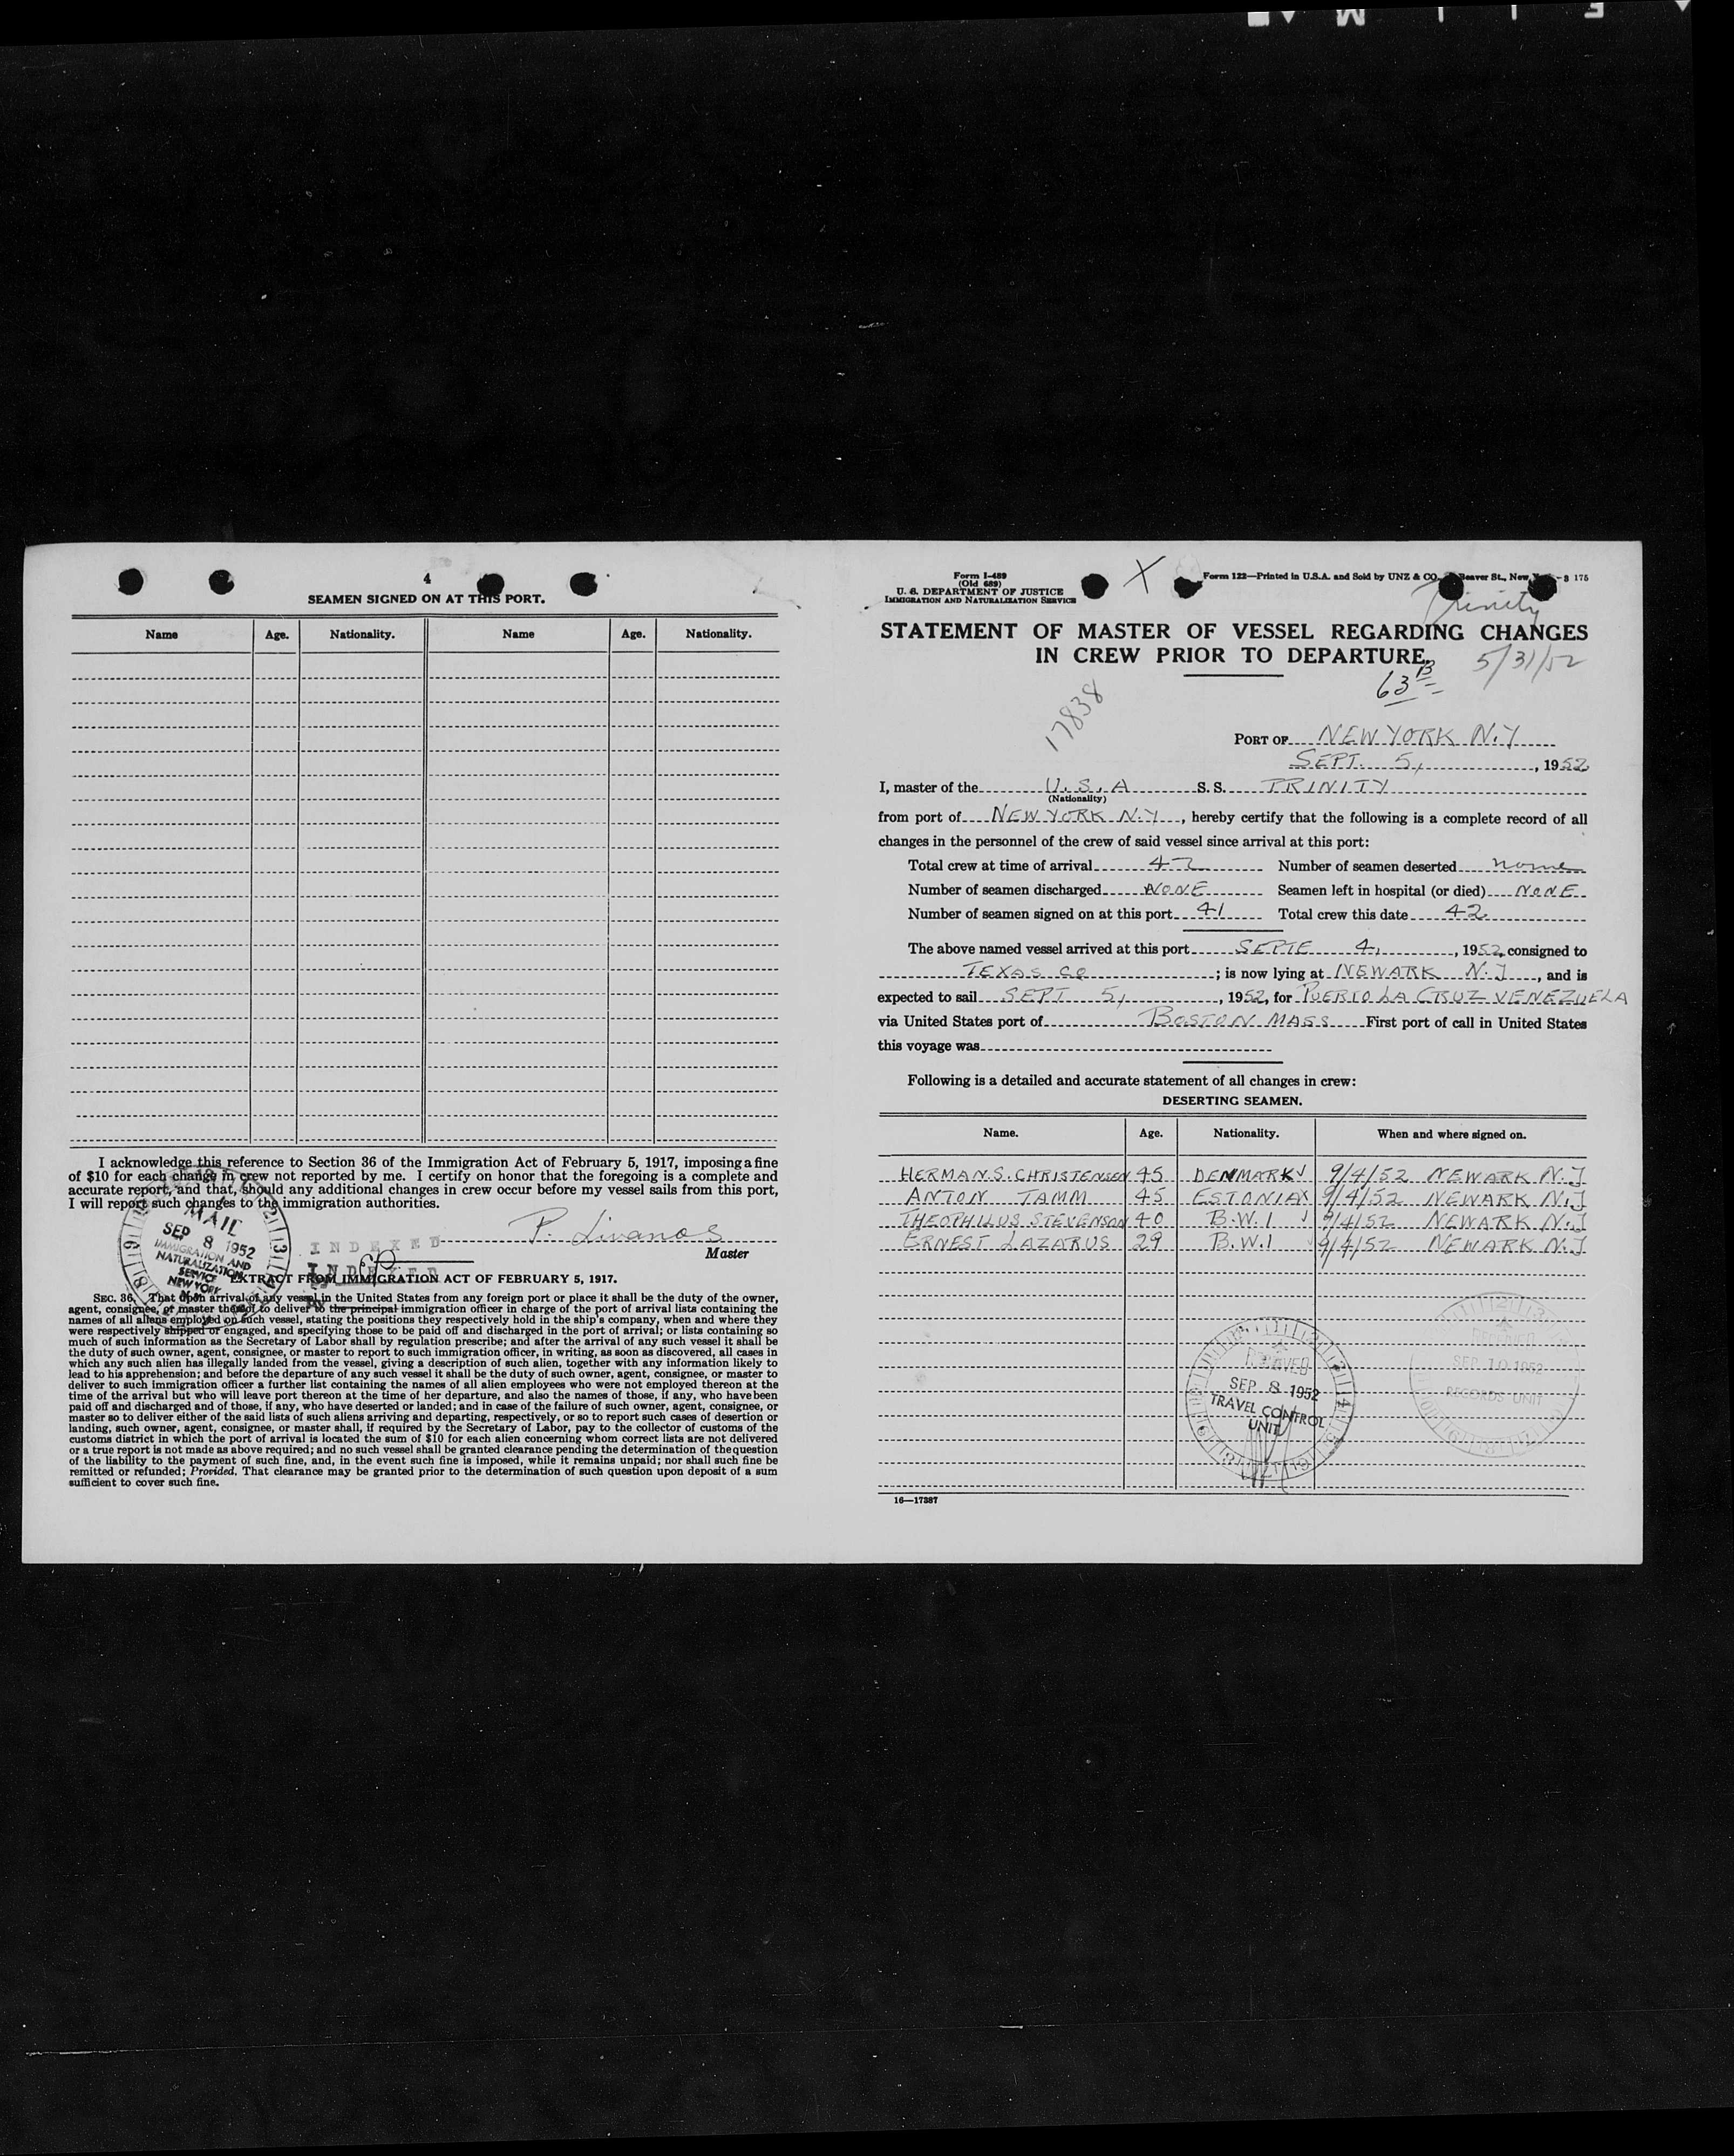 4
SEAMEN SIGNED ON AT THIS PORT.
Name Age. Nationality. Name Age. Nationality.
I acknowledge this reference to Section 36 of the Immigration Act of February 5, 1917, imposing a fine
of $10 for each change in crew not reported by me. I certify on honor that the foregoing is a complete and
accurate report, and that, should any additional changes in crew occur before my vessel sails from this port,
I will report such changes to the immigration authorities.
P. Livanos
Master
MAIL
SEP 8 1952
IMMIGRATION AND
NATURALIZATION
SERVICE
NEW YORK
INDEXED
INDEXED
EXTRACT FROM IMMIGRATION ACT OF FEBRUARY 5, 1917.
SEC. 36. That upon arrival of any vessel in the United States from any foreign port or place it shall be the duty of the owner,
agent, consignee, or master thereof to deliver to the principal immigration officer in charge of the port of arrival lists containing the
names of all aliens employed on such vessel, stating the positions they respectively hold in the ship's company, when and where they
were respectively shipped or engaged, and specifying those to be paid off and discharged in the port of arrival; or lists containing so
much of such information as the Secretary of Labor shall by regulation prescribe; and after the arrival of any such vessel it shall be
the duty of such owner, agent, consignee, or master to report to such immigration officer, in writing, as soon as discovered, all cases in
which any such alien has illegally landed from the vessel, giving a description of such alien, together with any information likely to
lead to his apprehension; and before the departure of any such vessel it shall be the duty of such owner, agent, consignee, or master to
deliver to such immigration officer a further list containing the names of all alien employees who were not employed thereon at the
time of the arrival but who will leave port thereon at the time of her departure, and also the names of those, if any, who have been
paid off and discharged and of those, if any, who have deserted or landed; and in case of the failure of such owner, agent, consignee, or
master so to deliver either of the said lists of such aliens arriving and departing, respectively, or so to report such cases of desertion or
landing, such owner, agent, consignee, or master shall, if required by the Secretary of Labor, pay to the collector of customs of the
customs district in which the port of arrival is located the sum of $10 for each alien concerning whom correct lists are not delivered
or a true report is not made as above required; and no such vessel shall be granted clearance pending the determination of the question
of the liability to the payment of such fine, and, in the event such fine is imposed, while it remains unpaid; nor shall such fine be
remitted or refunded; Provided, That clearance may be granted prior to the determination of such question upon deposit of a sum
sufficient to cover such fine.
Form I-489
(Old 689)
U. S. DEPARTMENT OF JUSTICE
IMMIGRATION AND NATURALIZATION SERVICE
X
Form 122—Printed in U.S.A. and Sold by UNZ & CO. Beaver St., New - 3 175
Trinity
STATEMENT OF MASTER OF VESSEL REGARDING CHANGES
IN CREW PRIOR TO DEPARTURE.
5/31/52
63 B
17838
PORT OF NEW YORK N.Y
SEPT. 5, , 1952
I, master of the U.S.A S. S. TRINITY
(Nationality)
from port of NEW YORK N.Y , hereby certify that the following is a complete record of all
changes in the personnel of the crew of said vessel since arrival at this port:
Total crew at time of arrival 42 Number of seamen deserted none
Number of seamen discharged NONE Seamen left in hospital (or died) NONE
Number of seamen signed on at this port 41 Total crew this date 42
The above named vessel arrived at this port SEPTE 4, , 1952, consigned to
TEXAS CO ; is now lying at NEWARK N.J , and is
expected to sail SEPT 5, , 1952, for PUERTO LA CRUZ VENEZUELA
via United States port of BOSTON MASS First port of call in United States
this voyage was
Following is a detailed and accurate statement of all changes in crew:
DESERTING SEAMEN.
Name. Age. Nationality. When and where signed on.
HERMAN S. CHRISTENSEN 45 DENMARK 9/4/52 NEWARK N.J
ANTON TAMM 45 ESTONIA 9/4/52 NEWARK N.J
THEOPHILUS STEVENSON 40 B.W.I 9/4/52 NEWARK N.J
ERNEST LAZARUS 29 B.W.I 9/4/52 NEWARK N.J
RECEIVED
SEP 8 1952
TRAVEL CONTROL
UNIT
RECEIVED
SEP 10 1952
RECORDS UNIT
16—17387